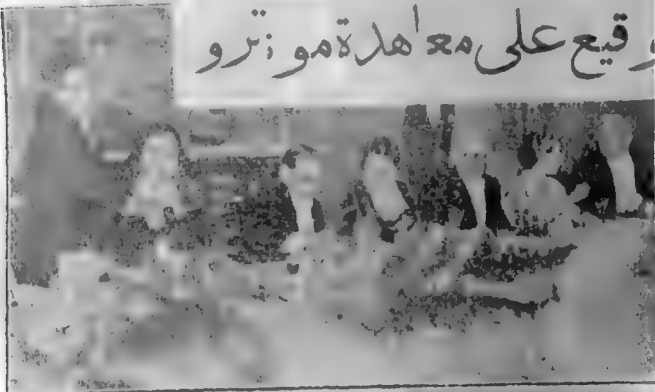 وقيع على معاهدة مونترو